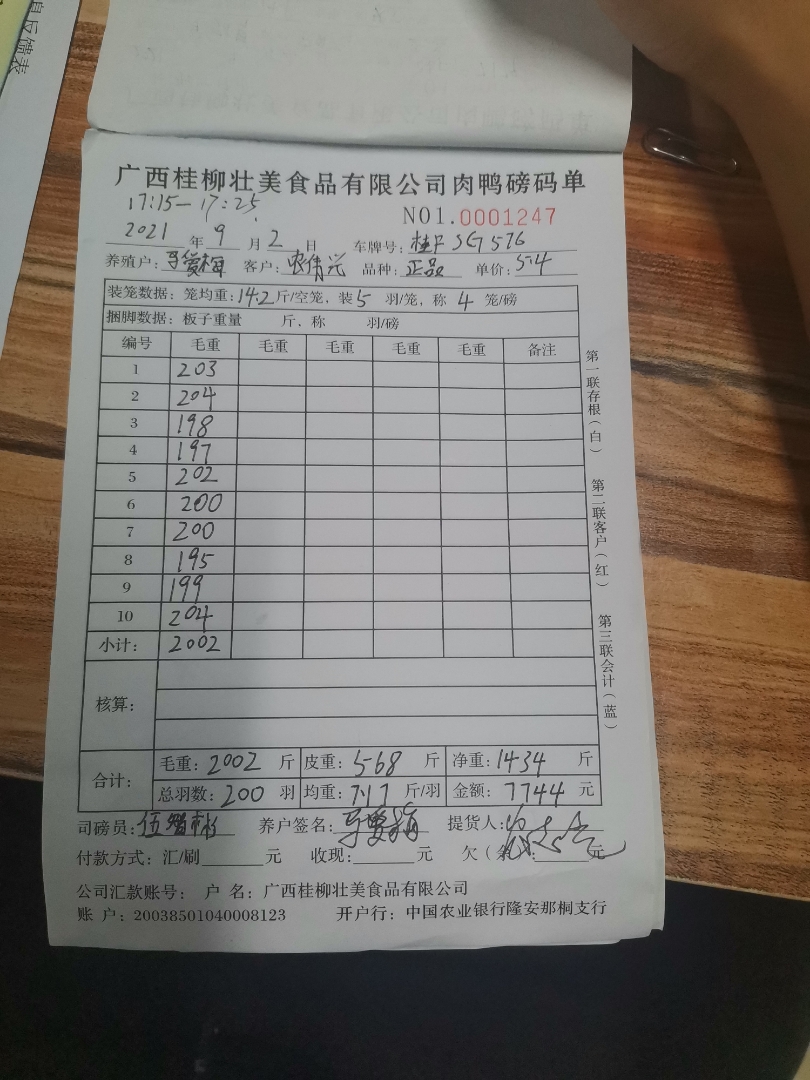 息反馈表
广西桂柳壮美食品有限公司肉鸭磅码单
17:15—17:25
NO1.0001247
2021年9月2日 车牌号:桂F SG576
养殖户: 客户:农伟兴 品种:正品 单价:5.4
装笼数据:笼均重:14.2斤/空笼,装5羽/笼,称4笼/磅
捆脚数据:板子重量 斤,称 羽/磅
编号 毛重 毛重 毛重 毛重 毛重 备注
1 203
2 204
3 198
4 197
5 202
6 200
7 200
8 195
9 199
10 204
小计: 2002
核算:
合计: 毛重:2002斤 皮重:568斤 净重:1434斤
总羽数:200羽 均重:7.17斤/羽 金额:7744元
司磅员: 养户签名: 提货人:
付款方式:汇/刷 元 收现: 元 欠(余): 元
公司汇款账号: 户 名:广西桂柳壮美食品有限公司
账 户:20038501040008123 开户行:中国农业银行隆安那桐支行
第一联存根(白)
第二联客户(红)
第三联会计(蓝)